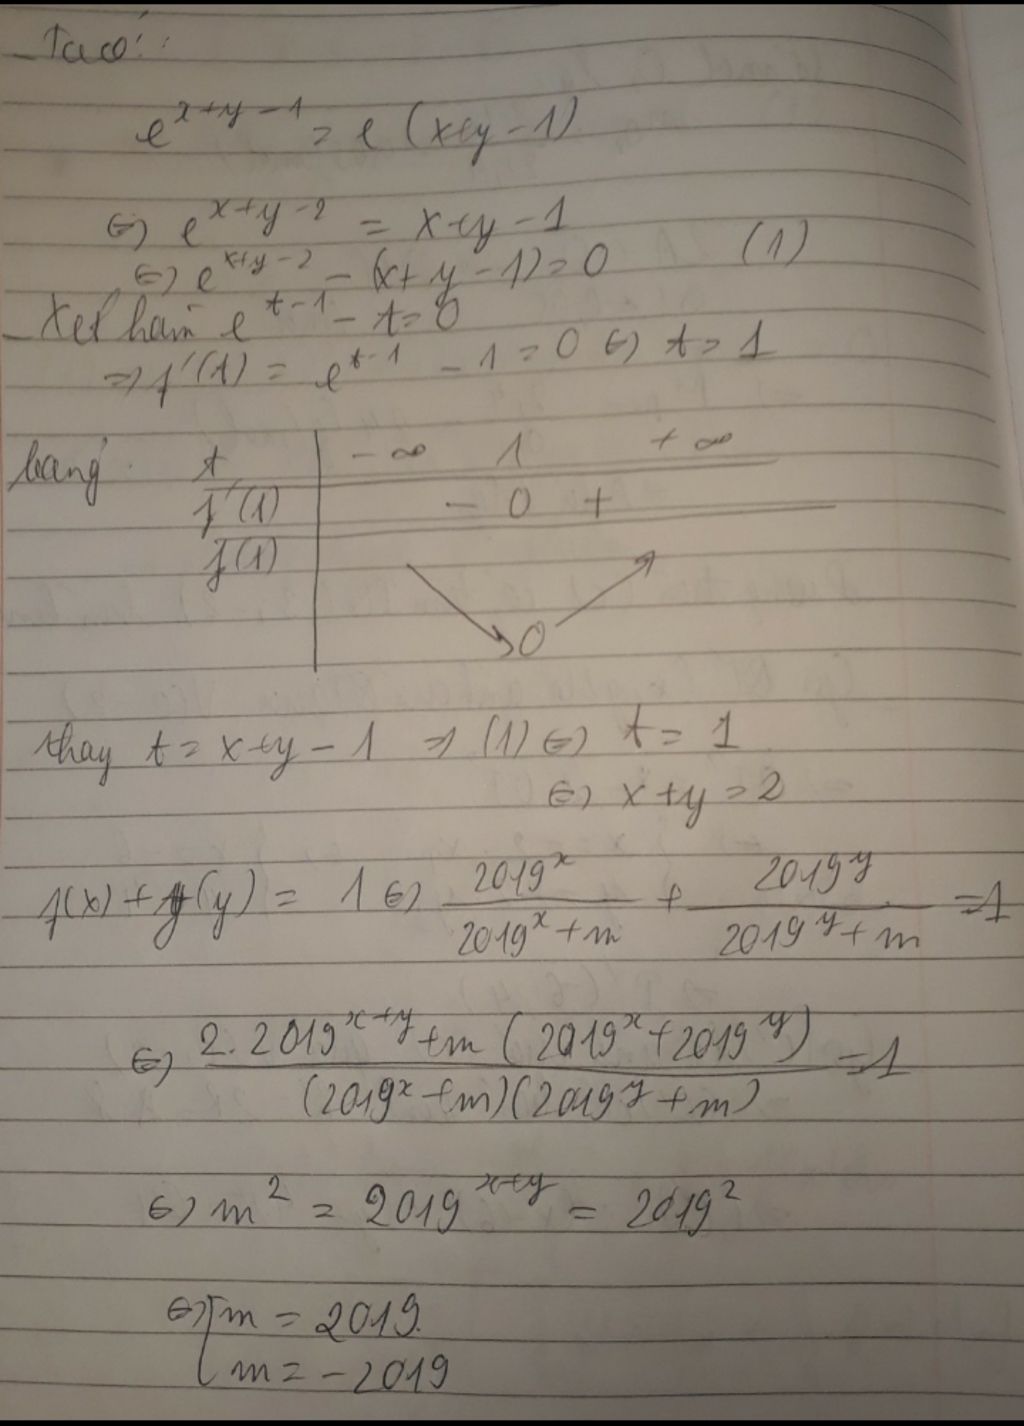 Ta có:
e^{x+y-1} = e (x+y-1)
⇔ e^{x+y-2} = x+y-1
⇔ e^{x+y-2} - (x+y-1) = 0 (1)
Xét hàm e^{t-1} - t = 0
⇒ f'(1) = e^{t-1} - 1 = 0 ⇔ t = 1
bảng t -∞ 1 +∞
f'(1) - 0 +
f(1)
0
thay t = x+y-1 ⇒ (1) ⇔ t = 1
⇔ x+y = 2
f(x) + f(y) = 1 ⇔ \frac{2019^x}{2019^x + m} + \frac{2019^y}{2019^y + m} = 1
⇔ \frac{2.2019^{x+y} + m(2019^x + 2019^y)}{(2019^x + m)(2019^y + m)} = 1
⇔ m^2 = 2019^{x+y} = 2019^2
⇔ [m = 2019.
m = -2019